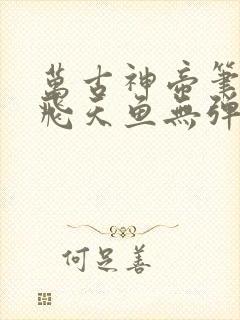 萬古神帝筆
飛天魚無彈
何足善